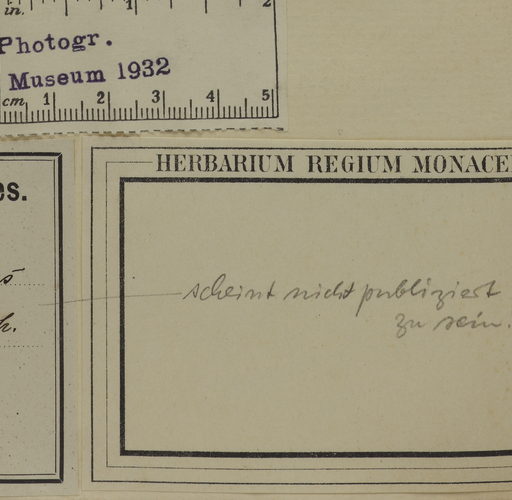 in. 1 2
Photogr.
Museum 1932
cm 1 2 3 4 5
es.
s
h.
HERBARIUM REGIUM MONACE
scheint nicht publiziert
zu sein.